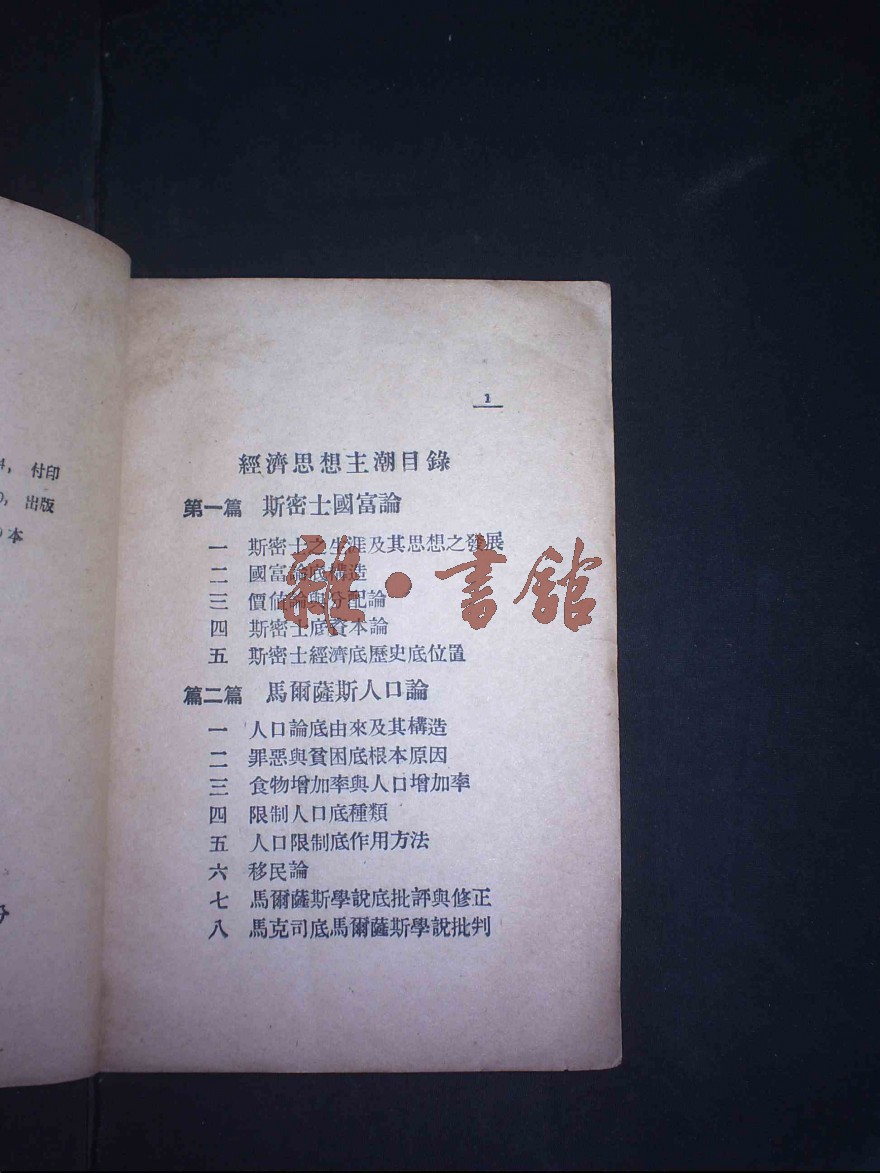 付印
出版
本
1
經濟思想主潮目錄
第一篇 斯密士國富論
一 斯密士之生涯及其思想之發展
二 國富論底構造
三 價值論與分配論
四 斯密士底資本論
五 斯密士經濟底歷史底位置
篇二篇 馬爾薩斯人口論
一 人口論底由來及其構造
二 罪惡與貧困底根本原因
三 食物增加率與人口增加率
四 限制人口底種類
五 人口限制底作用方法
六 移民論
七 馬爾薩斯學說底批評與修正
八 馬克司底馬爾薩斯學說批判
雜·書館